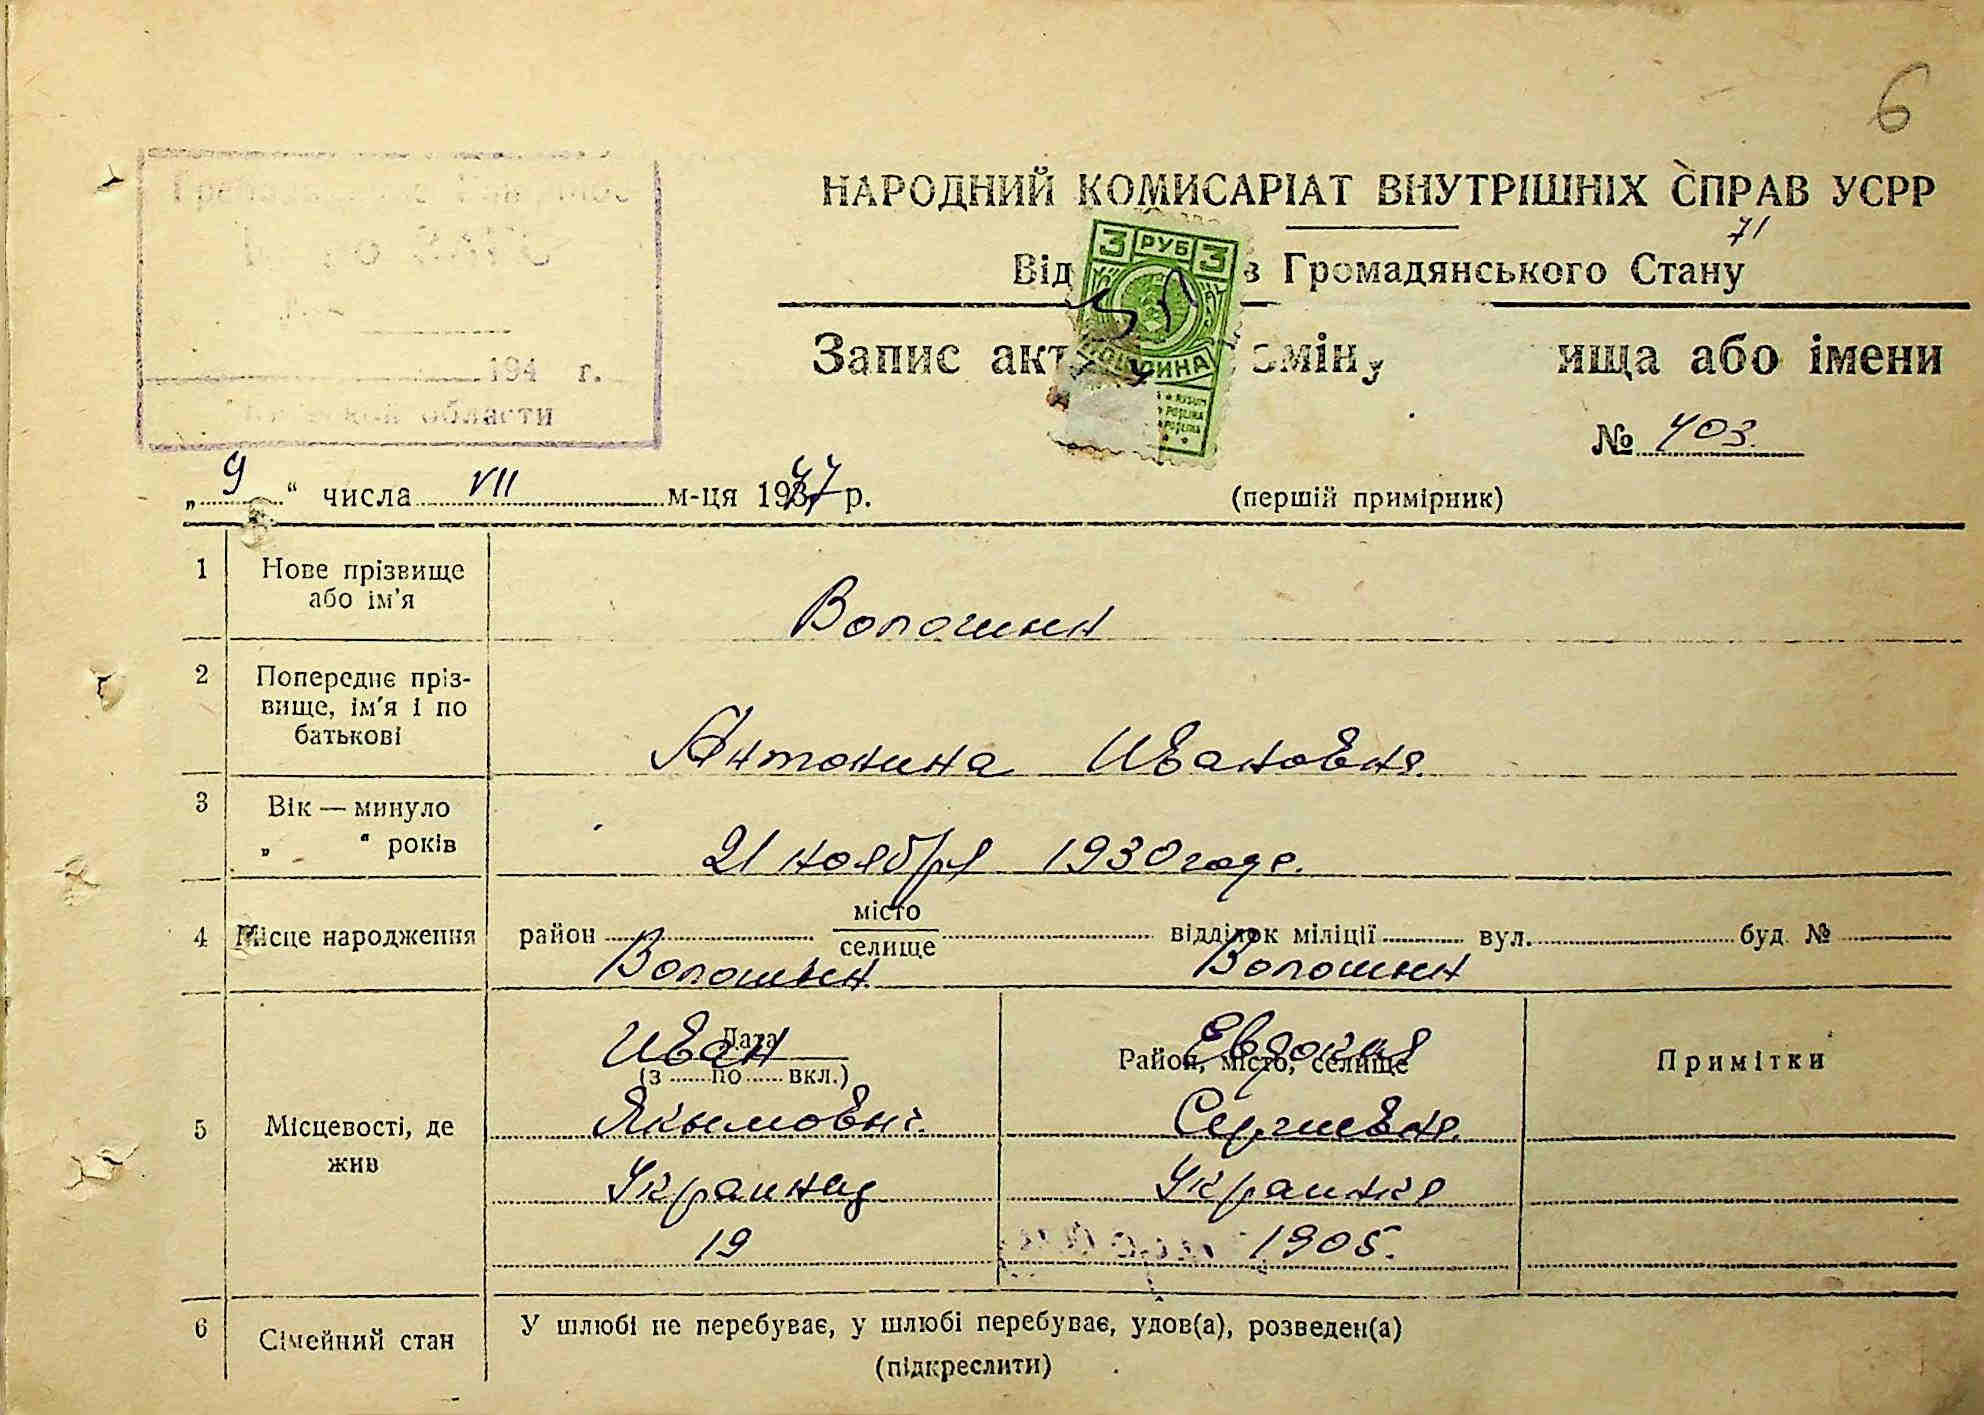 6
НАРОДНИЙ КОМИСАРІАТ ВНУТРІШНІХ СПРАВ УСРР
71
Від в Громадянського Стану
3 РУБ 3
Запис акт зміну ища або імени
194 г.
области
№ 403.
„ 9 “ числа VII м-ця 1947 р. (першій примірник)
1 Нове прізвище або ім'я
Волошин
2 Попереднє пріз-
вище, ім'я і по
батькові
Антонина Ивановна
3 Вік — минуло
„ “ років
21 ноября 1930 года.
4 Місце народження район місто
селище відділок міліції вул. буд. №
Волошин Волошин
5 Місцевості, де
жив
Дата
(з ...... по ...... вкл.)
Район, місто, селище
Примітки
Иван Евдокия
Якимович Сергиевна
Украинец Украинка
19 1905.
6 Сімейний стан У шлюбі не перебуває, у шлюбі перебуває, удов(а), розведен(а)
(підкреслити)